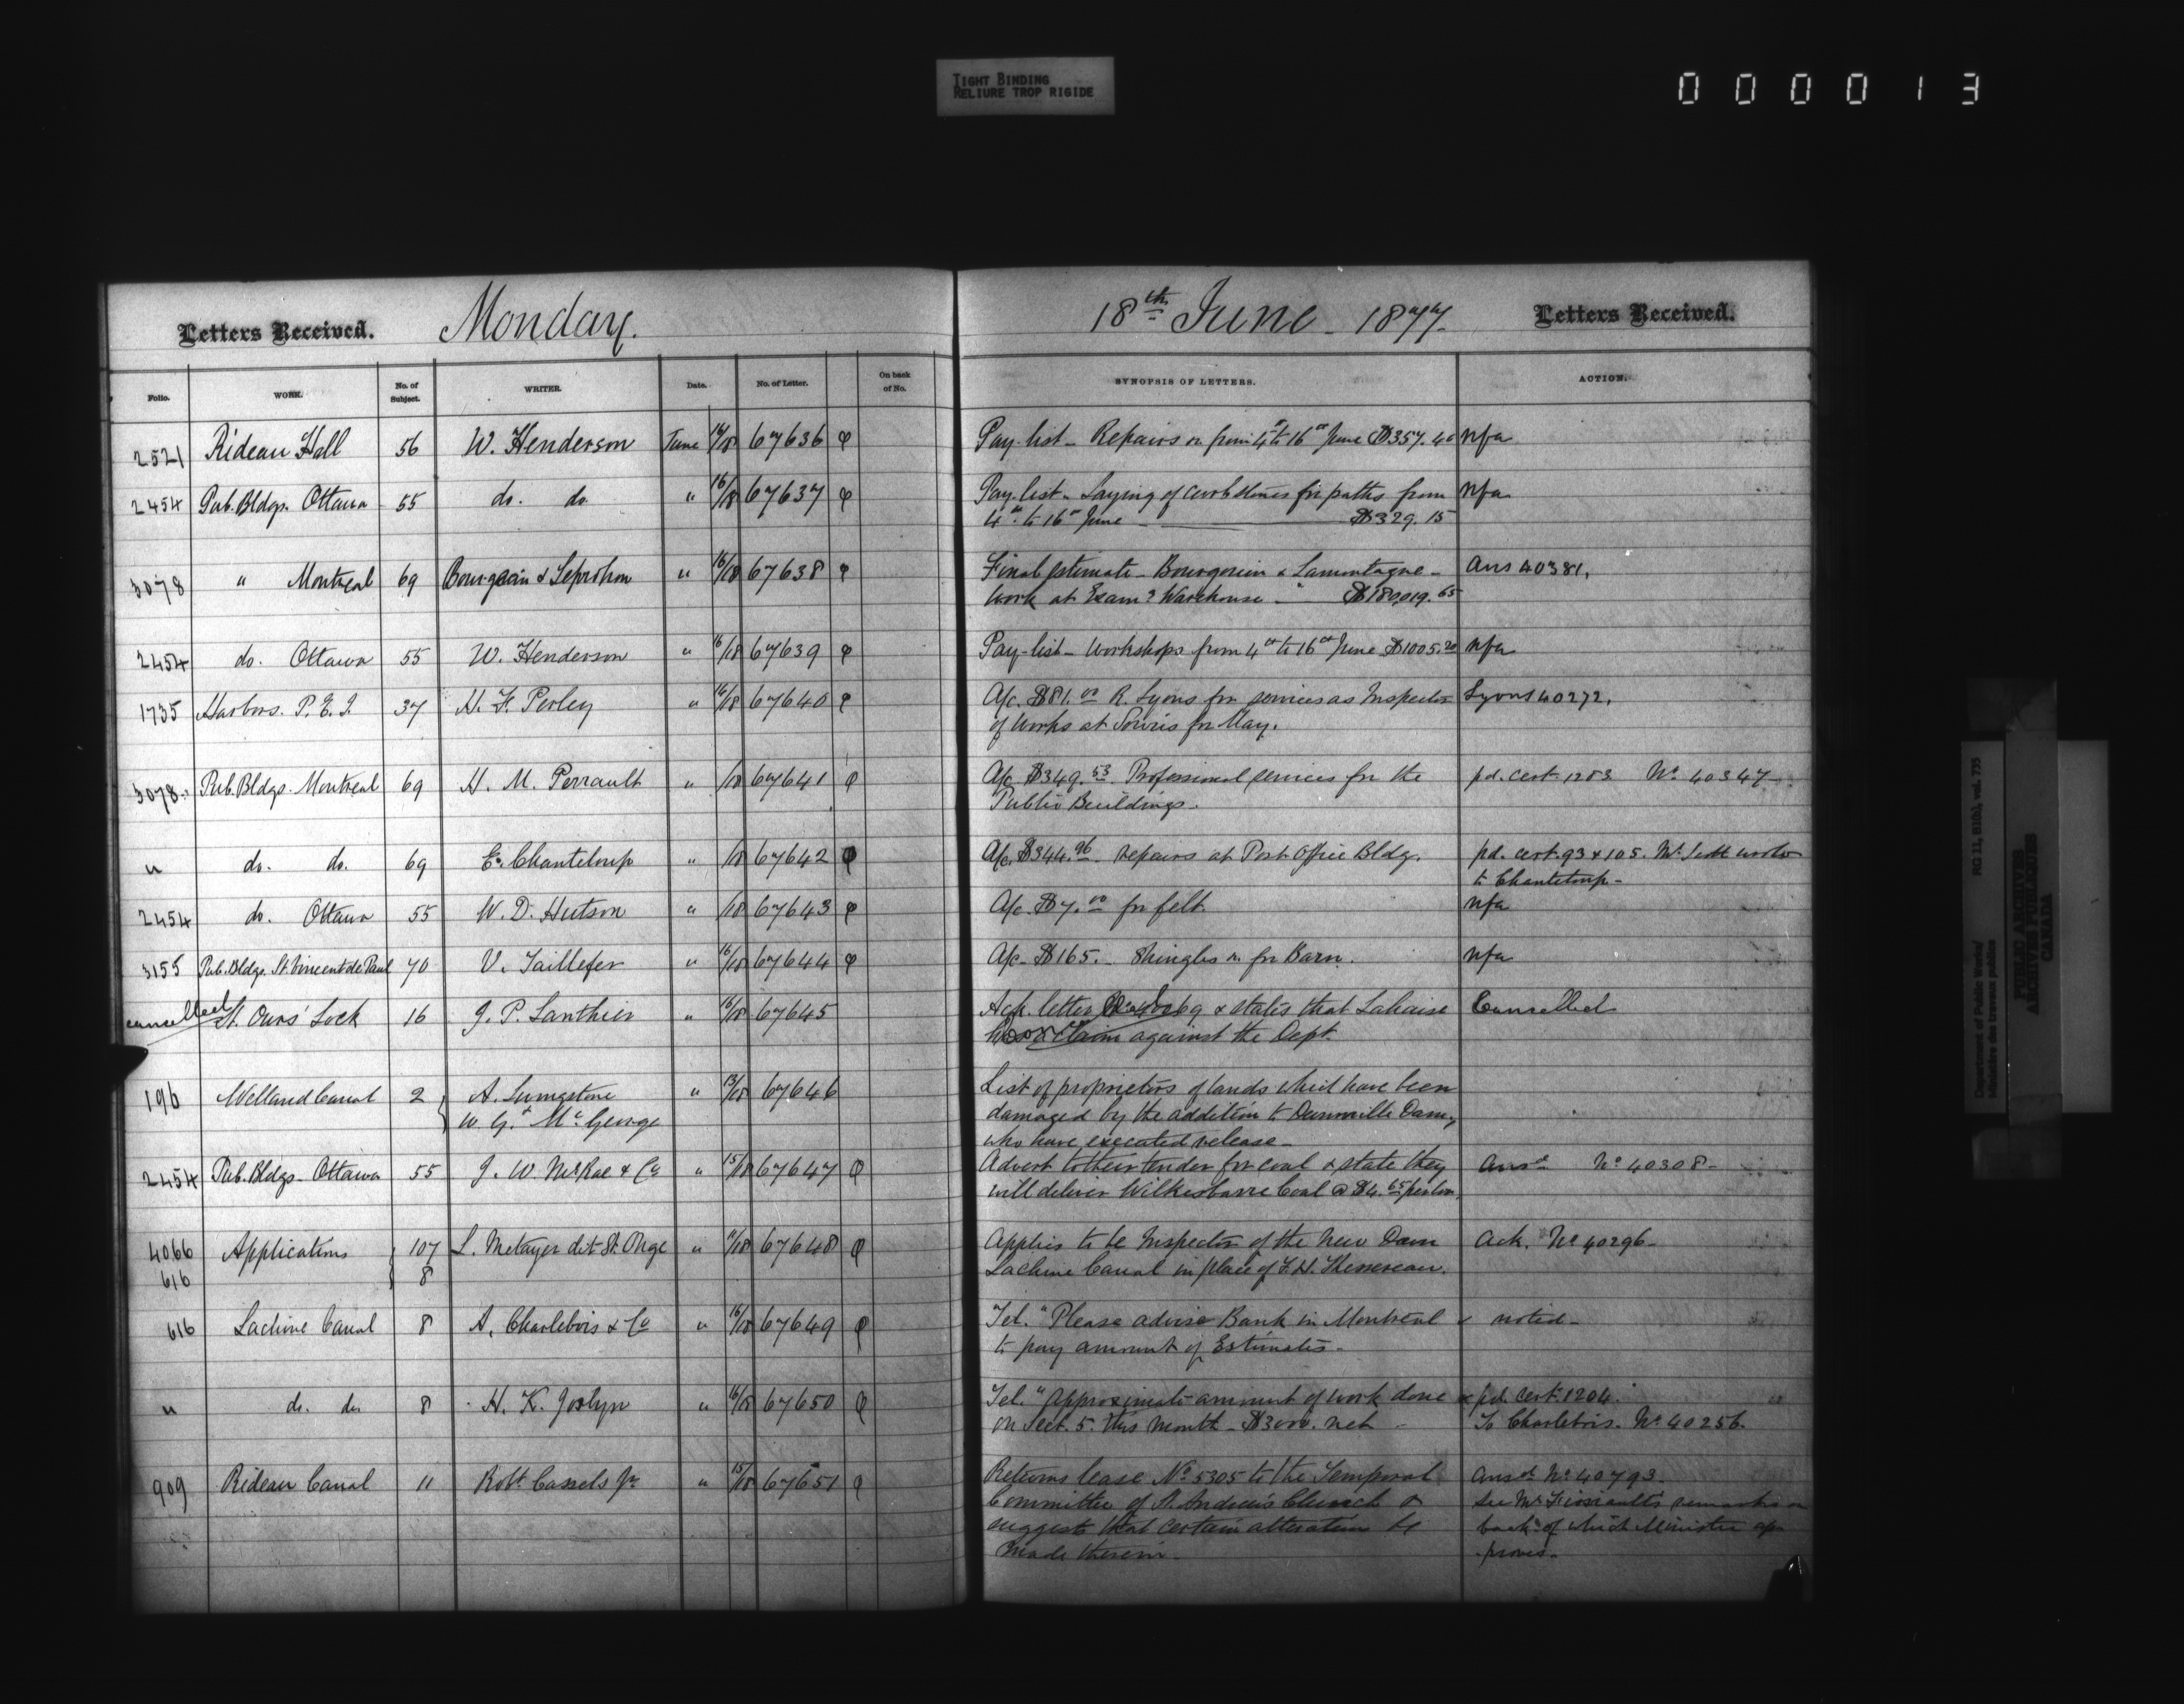 TIGHT BINDING
RELIURE TROP RIGIDE
0 0 0 0 1 3
Letters Received. Monday. 18th June - 1877. Letters Received.
Folio. WORK. No. of Subject. WRITER. Date. No. of Letter. On back of No. SYNOPSIS OF LETTERS. ACTION.
2521 Rideau Hall 56 W. Henderson June 16/18 67636 φ Pay-list - Repairs from 4th to 16th June $357.40 nfa
2454 Pub. Bldgs. Ottawa 55 do. do " 16/18 67637 φ Pay-list - Laying of curbstones for paths from nfa
4th to 16th June - $329.15
3078 " Montreal 69 Bourgouin & Leprohon " 16/18 67638 φ Final Estimate - Bourgouin & Lamontagne - Ans 40381,
work at Exam. Warehouse - $180,019.65
2454 do. Ottawa 55 W. Henderson " 16/18 67639 φ Pay-list - Workshops from 4th to 16th June $1005.20 nfa
1735 Harbors. P.E.I. 37 H. F. Perley " 16/18 67640 φ A/c. $81.00 R. Lyons for services as Inspector Lyons 40272.
of works at Souris for May.
3078 Pub. Bldgs. Montreal 69 H. M. Perrault " /18 67641 φ A/c $349.53 Professional services for the pd. cert. 1283 No 40347
Public Buildings.
" do. do. 69 E. Chanteloup " /18 67642 φ A/c. $344.96 repairs at Post Office Bldg. pd. cert. 93 & 105. Mr. Scott wrote
to Chanteloup -
2454 do. Ottawa 55 W. D. Hutson " /18 67643 φ A/c. $7.00 for felt. nfa
3155 Pub. Bldgs. St. Vincent de Paul 70 V. Taillefer " 16/18 67644 φ A/c. $165. - Shingles for Barn. nfa
cancelled St. Ours' Lock 16 J. P. Lanthier " 16/18 67645 Ack. letter & states that Lahaise Cancelled
claim against the Dept.
196 Welland Canal 2 A. " 13/18 67646 List of proprietors of lands which have been
W. G. McGeorge damaged by the addition to Dunnville Dam,
who have executed release -
2454 Pub. Bldgs - Ottawa 55 J. W. McRae & Co " 15/18 67647 φ Advert to their tender for coal & state they Ansd No 40308 -
will deliver Wilkesbarre Coal @ $4.65 per ton.
4066 Applications 107 L. Metayer dit St. Onge " 11/18 67648 φ Applies to be Inspector of the new Dam Ack. No 40296 -
616 8 Lachine Canal in place of F. H.
616 Lachine Canal 8 A. Charlebois & Co " 16/18 67649 φ Tel. "Please advise Bank in Montreal noted -
to pay amount of Estimates -
" do. do 8 H. K. Joslyn " 16/18 67650 φ Tel. "Approximate amount of work done pd. cert. 1204.
on Sect. 5. this month - $3000. net - To Charlebois. No 40256.
909 Rideau Canal 11 Robt Cassels Jr " 15/18 67651 φ Returns lease No 5305 to the Temporal Ansd No 40793.
Committee of St. Andrew's Church & See Mr. remarks on
suggests that certain alteration be back of which Minister ap-
made therein - proves.
Department of Public Works/
Ministère des travaux publics
RG 11, B1(c), vol. 735
PUBLIC ARCHIVES
ARCHIVES PUBLIQUES
CANADA